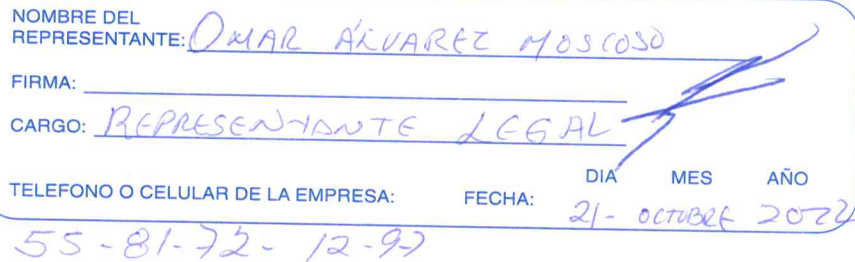 NOMBRE DEL
REPRESENTANTE: OMAR ÁLVAREZ MOSCOSO
FIRMA:
CARGO: REPRESENTANTE LEGAL
DIA MES AÑO
TELEFONO O CELULAR DE LA EMPRESA: FECHA: 21- OCTUBRE 2022
55-81-72-12-97